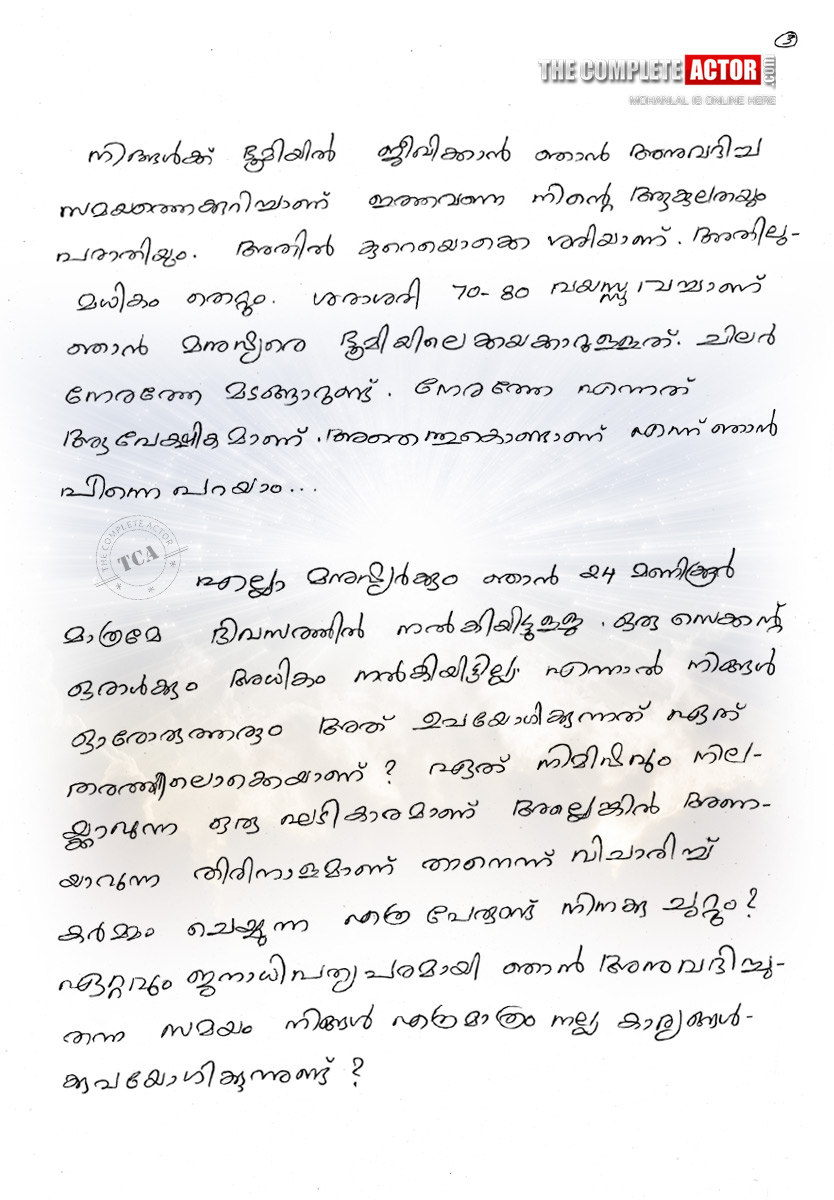 3
THE COMPLETE ACTOR .com
MOHANLAL IS ONLINE HERE
നിങ്ങൾക്ക് ഭൂമിയിൽ ജീവിക്കാൻ ഞാൻ അനുവദിച്ച
സമയത്തെക്കുറിച്ചാണ് ഇത്തവണ നിന്റെ ആകുലതയും
പരാതിയും. അതിൽ കുറെയൊക്കെ ശരിയാണ്. അതിലു-
മധികം തെറ്റും. ശരാശരി 70-80 വയസ്സുവച്ചാണ്
ഞാൻ മനുഷ്യരെ ഭൂമിയിലെക്കയക്കാറുള്ളത്. ചിലർ
നേരത്തേ മടങ്ങാറുണ്ട്. നേരത്തേ എന്നത്
ആപേക്ഷികമാണ്. അതെന്തുകൊണ്ടാണ് എന്ന് ഞാൻ
പിന്നെ പറയാം...
THE COMPLETE ACTOR
TCA
എല്ലാ മനുഷ്യർക്കും ഞാൻ 24 മണിക്കൂർ
മാത്രമേ ദിവസത്തിൽ നൽകിയിട്ടുള്ളു. ഒരു സെക്കന്റ്
ഒരാൾക്കും അധികം നൽകിയിട്ടില്ല. എന്നാൽ നിങ്ങൾ
ഓരോരുത്തരും അത് ഉപയോഗിക്കുന്നത് ഏത്
തരത്തിലൊക്കെയാണ്? ഏത് നിമിഷവും നില-
യ്ക്കാവുന്ന ഒരു ഘടികാരമാണ് അല്ലെങ്കിൽ അണ-
യാവുന്ന തിരിനാളമാണ് താനെന്ന് വിചാരിച്ച്
കർമ്മം ചെയ്യുന്ന എത്ര പേരുണ്ട് നിനക്കു ചുറ്റും?
ഏറ്റവും ജനാധിപത്യപരമായി ഞാൻ അനുവദിച്ചു-
തന്ന സമയം നിങ്ങൾ എത്രമാത്രം നല്ല കാര്യങ്ങൾ-
ക്കുപയോഗിക്കുന്നുണ്ട്?